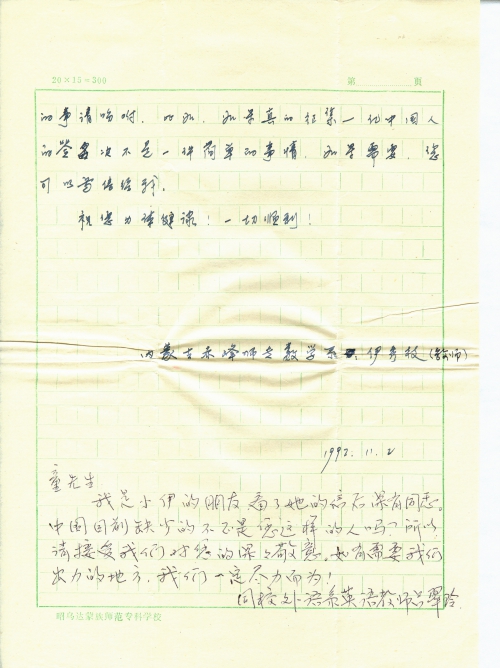 20×15=300 第 页
的事请吩咐。此外,如果真的征集一亿中国人
的签名决不是一件简单的事情,如果需要,您
可以写信给我。
祝您身体健康!一切顺利!
内蒙古赤峰师专数学系 伊秀枝(教师)
1992.11.2
童先生
我是小伊的朋友,看了她的信后深有同感。
中国目前缺少的不正是您这样的人吗?所以
请接受我们对您的深深敬意。如有需要我们
出力的地方,我们一定尽力而为!
同校外语系英语教师
昭乌达蒙族师范专科学校